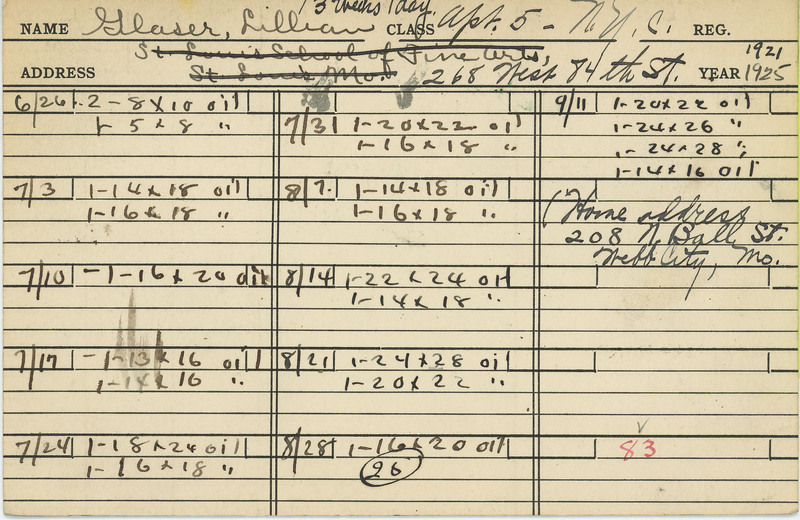 13 Weeks 1 day
NAME Glaser, Lillian CLASS Apt. 5 - N.Y.C. REG.
St. Louis School of Fine Arts, 1921
ADDRESS St. Louis Mo. 268 West 84th St. YEAR 1925
6/26 2-8x10 oil
1-5x8 "
7/3 1-14x18 oil
1-16x18 "
7/10 -1-16x20 oil
7/17 -1-13x16 oil
1-14x16 "
7/24 1-18x24 oil
1-16x18 "
7/31 1-20x22 oil
1-16x18 "
8/7. 1-14x18 oil
1-16x18 "
8/14 1-22x24 oil
1-14x18 "
8/21 1-24x28 oil
1-20x22 "
8/28 1-16x20 oil
26
9/11 1-20x22 oil
1-24x26 "
1-24x28 "
1-14x16 oil
(Home address
208 N. Ball St.
Webb City, Mo.
83